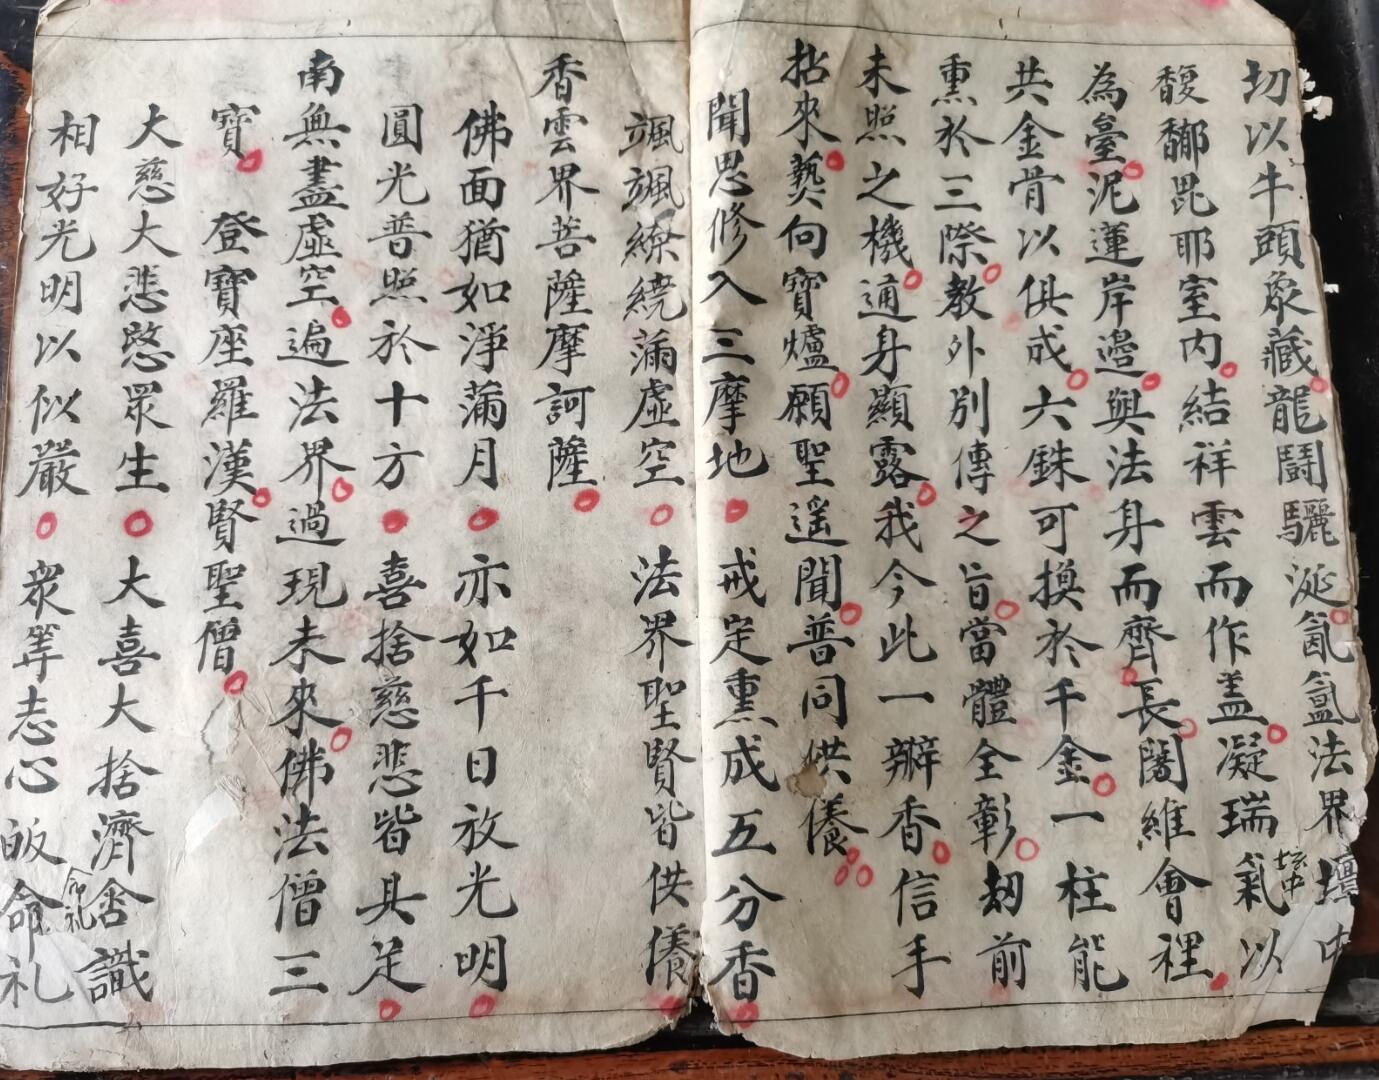 切以牛頭象藏龍鬪驪涎氤氳法界壇中
壇中
馥郁毘耶室内結祥雲而作盖凝瑞氣以
為臺泥蓮岸邉與法身而齊長闍維會裡
共金骨以俱成六銖可換於千金一柱能
熏於三際教外別傳之旨當體全彰刼前
未照之機通身顯露我今此一瓣香信手
拈來爇向寶爐願聖遥聞普同供養
聞思修入三摩地 戒定熏成五分香
颯颯繚繞滿虛空 法界聖賢皆供養
香雲界菩薩摩訶薩
佛面猶如淨滿月 亦如千日放光明
圓光普照於十方 喜捨慈悲皆具足
南無盡虛空遍法界過現未來佛法僧三
寶 登寶座羅漢賢聖僧
大慈大悲愍眾生 大喜大捨濟含識
相好光明以似嚴 眾等志心皈命礼
命礼